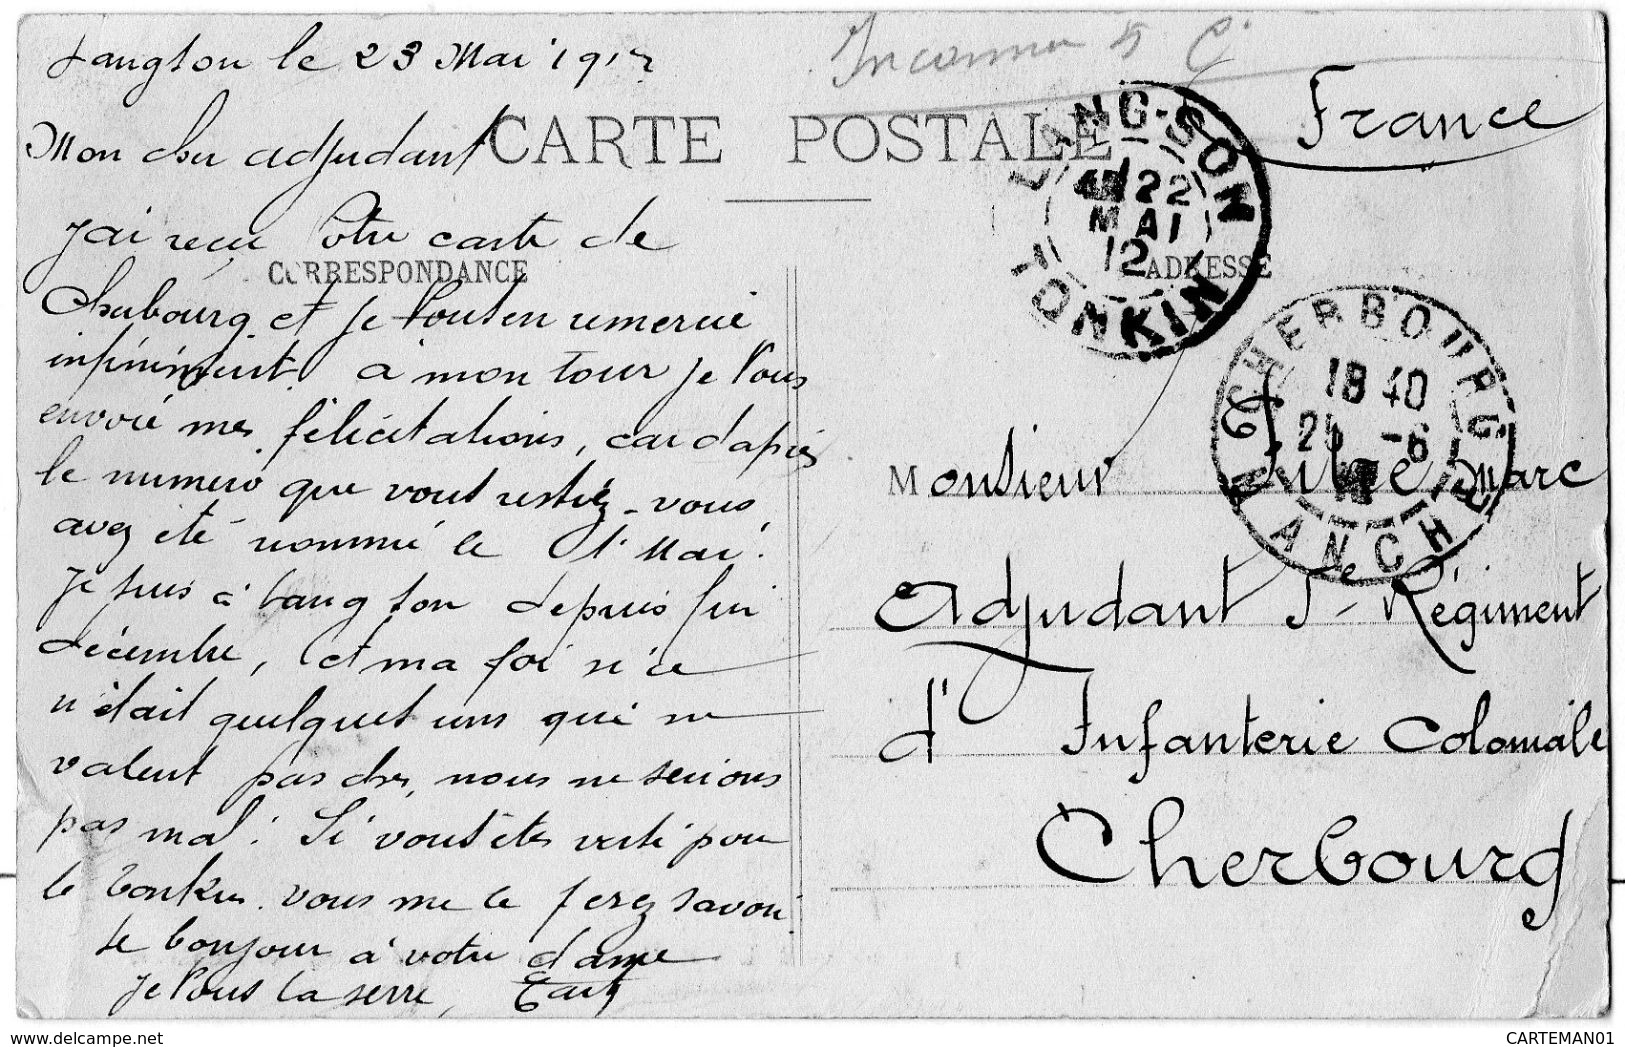 Langson le 23 Mai 1912
Inconnu 5 C
France
CARTE POSTALE
Mon cher adjudant
LANG-SON
22
MAI
12
TONKIN
J'ai reçu votre carte de
CORRESPONDANCE
ADRESSE
Cherbourg et je vous en remercie
infiniment. à mon tour je vous
envoie mes félicitations, car d'après
le numéro que vous restiez vous
avez été nommé le 1er Mai.
je suis à Langson depuis fin
décembre, et ma foi si ce
n'était quelques uns qui ne
valent pas cher, nous ne serions
pas mal. Si vous êtes resté pour
le Tonkin. vous me le ferez savoir
le bonjour à votre dame
je vous la serre,
CHERBOURG
18 40
25 -6
12
MANCHE
Monsieur Marc
Adjudant 5e Régiment
d'Infanterie Coloniale
Cherbourg
delcampe.net
CARTEMAN01